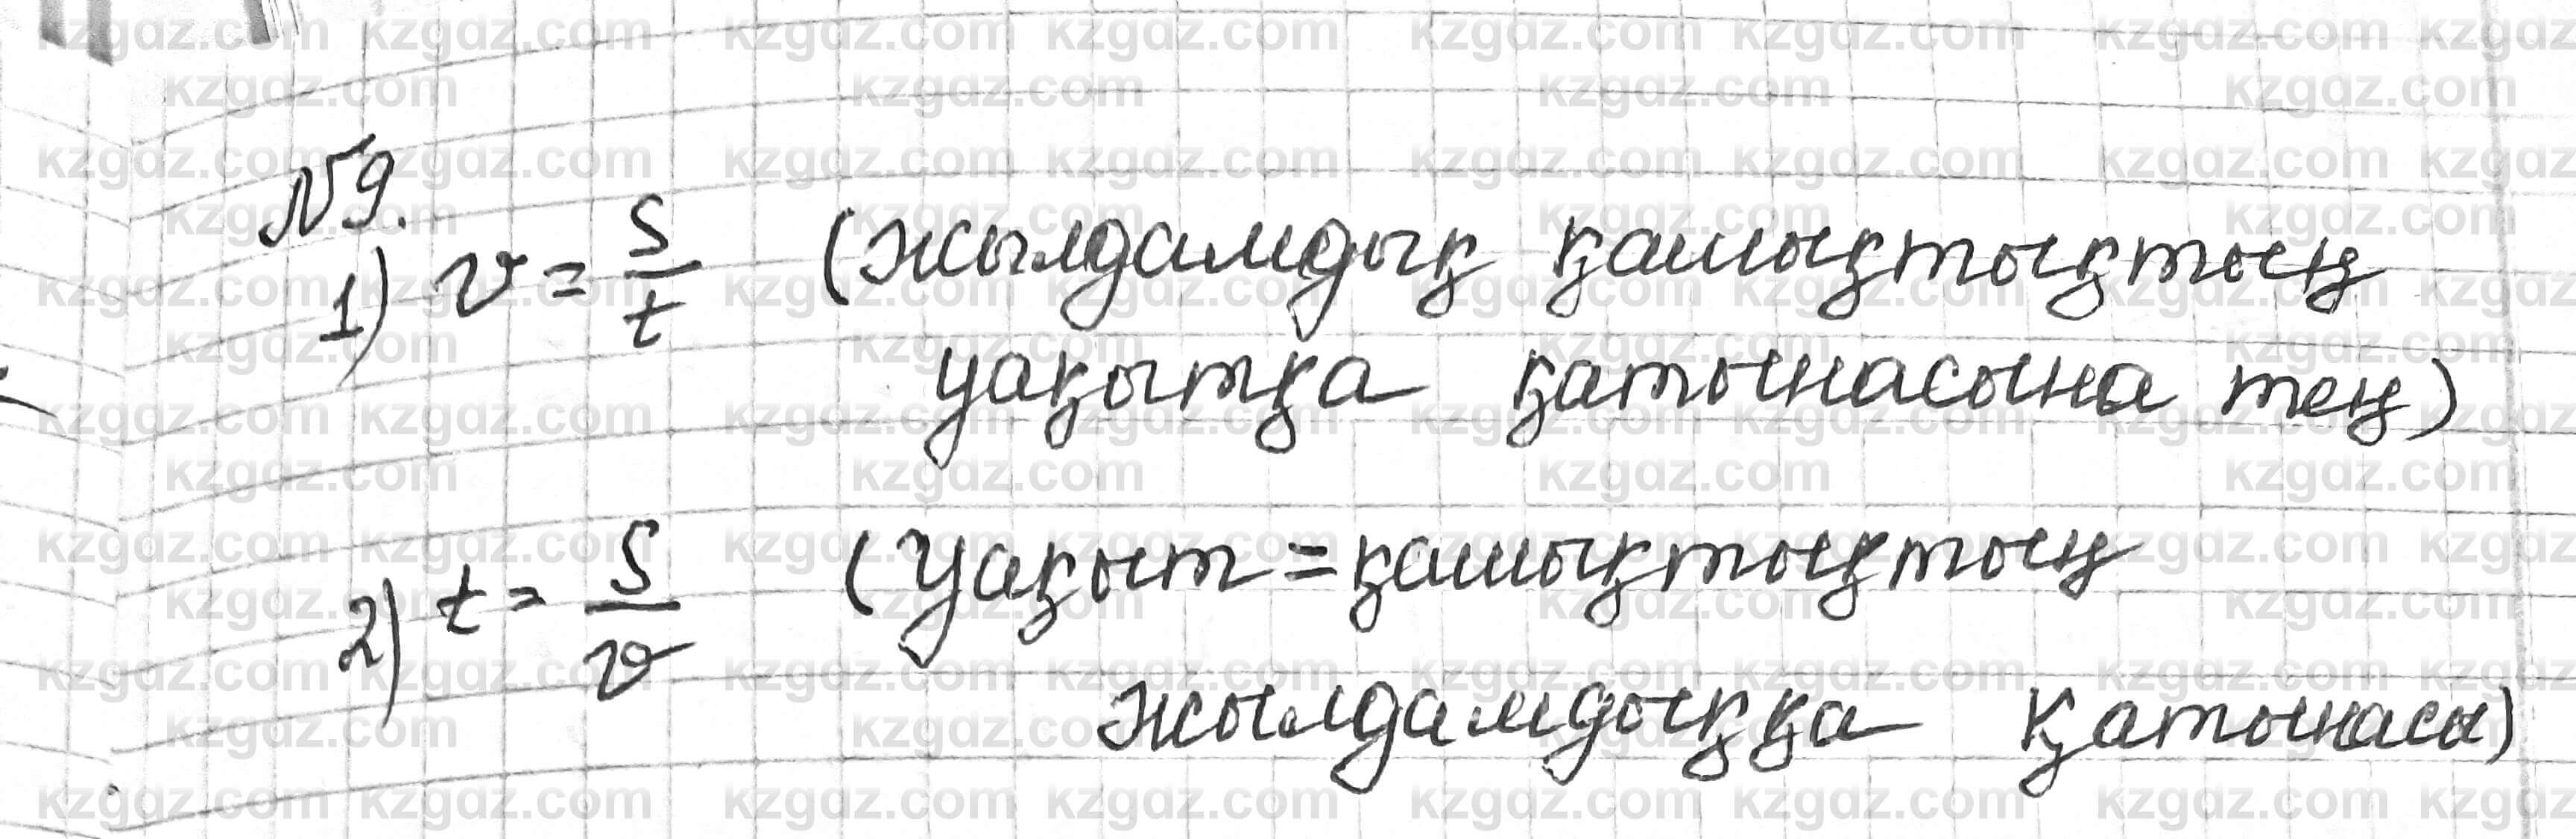 №9.
1) v = s/t (жылдамдық қашықтықтың
уақытқа қатынасына тең)
2) t = s/v (уақыт = қашықтықтың
жылдамдыққа қатынасы)
kzgdz.com